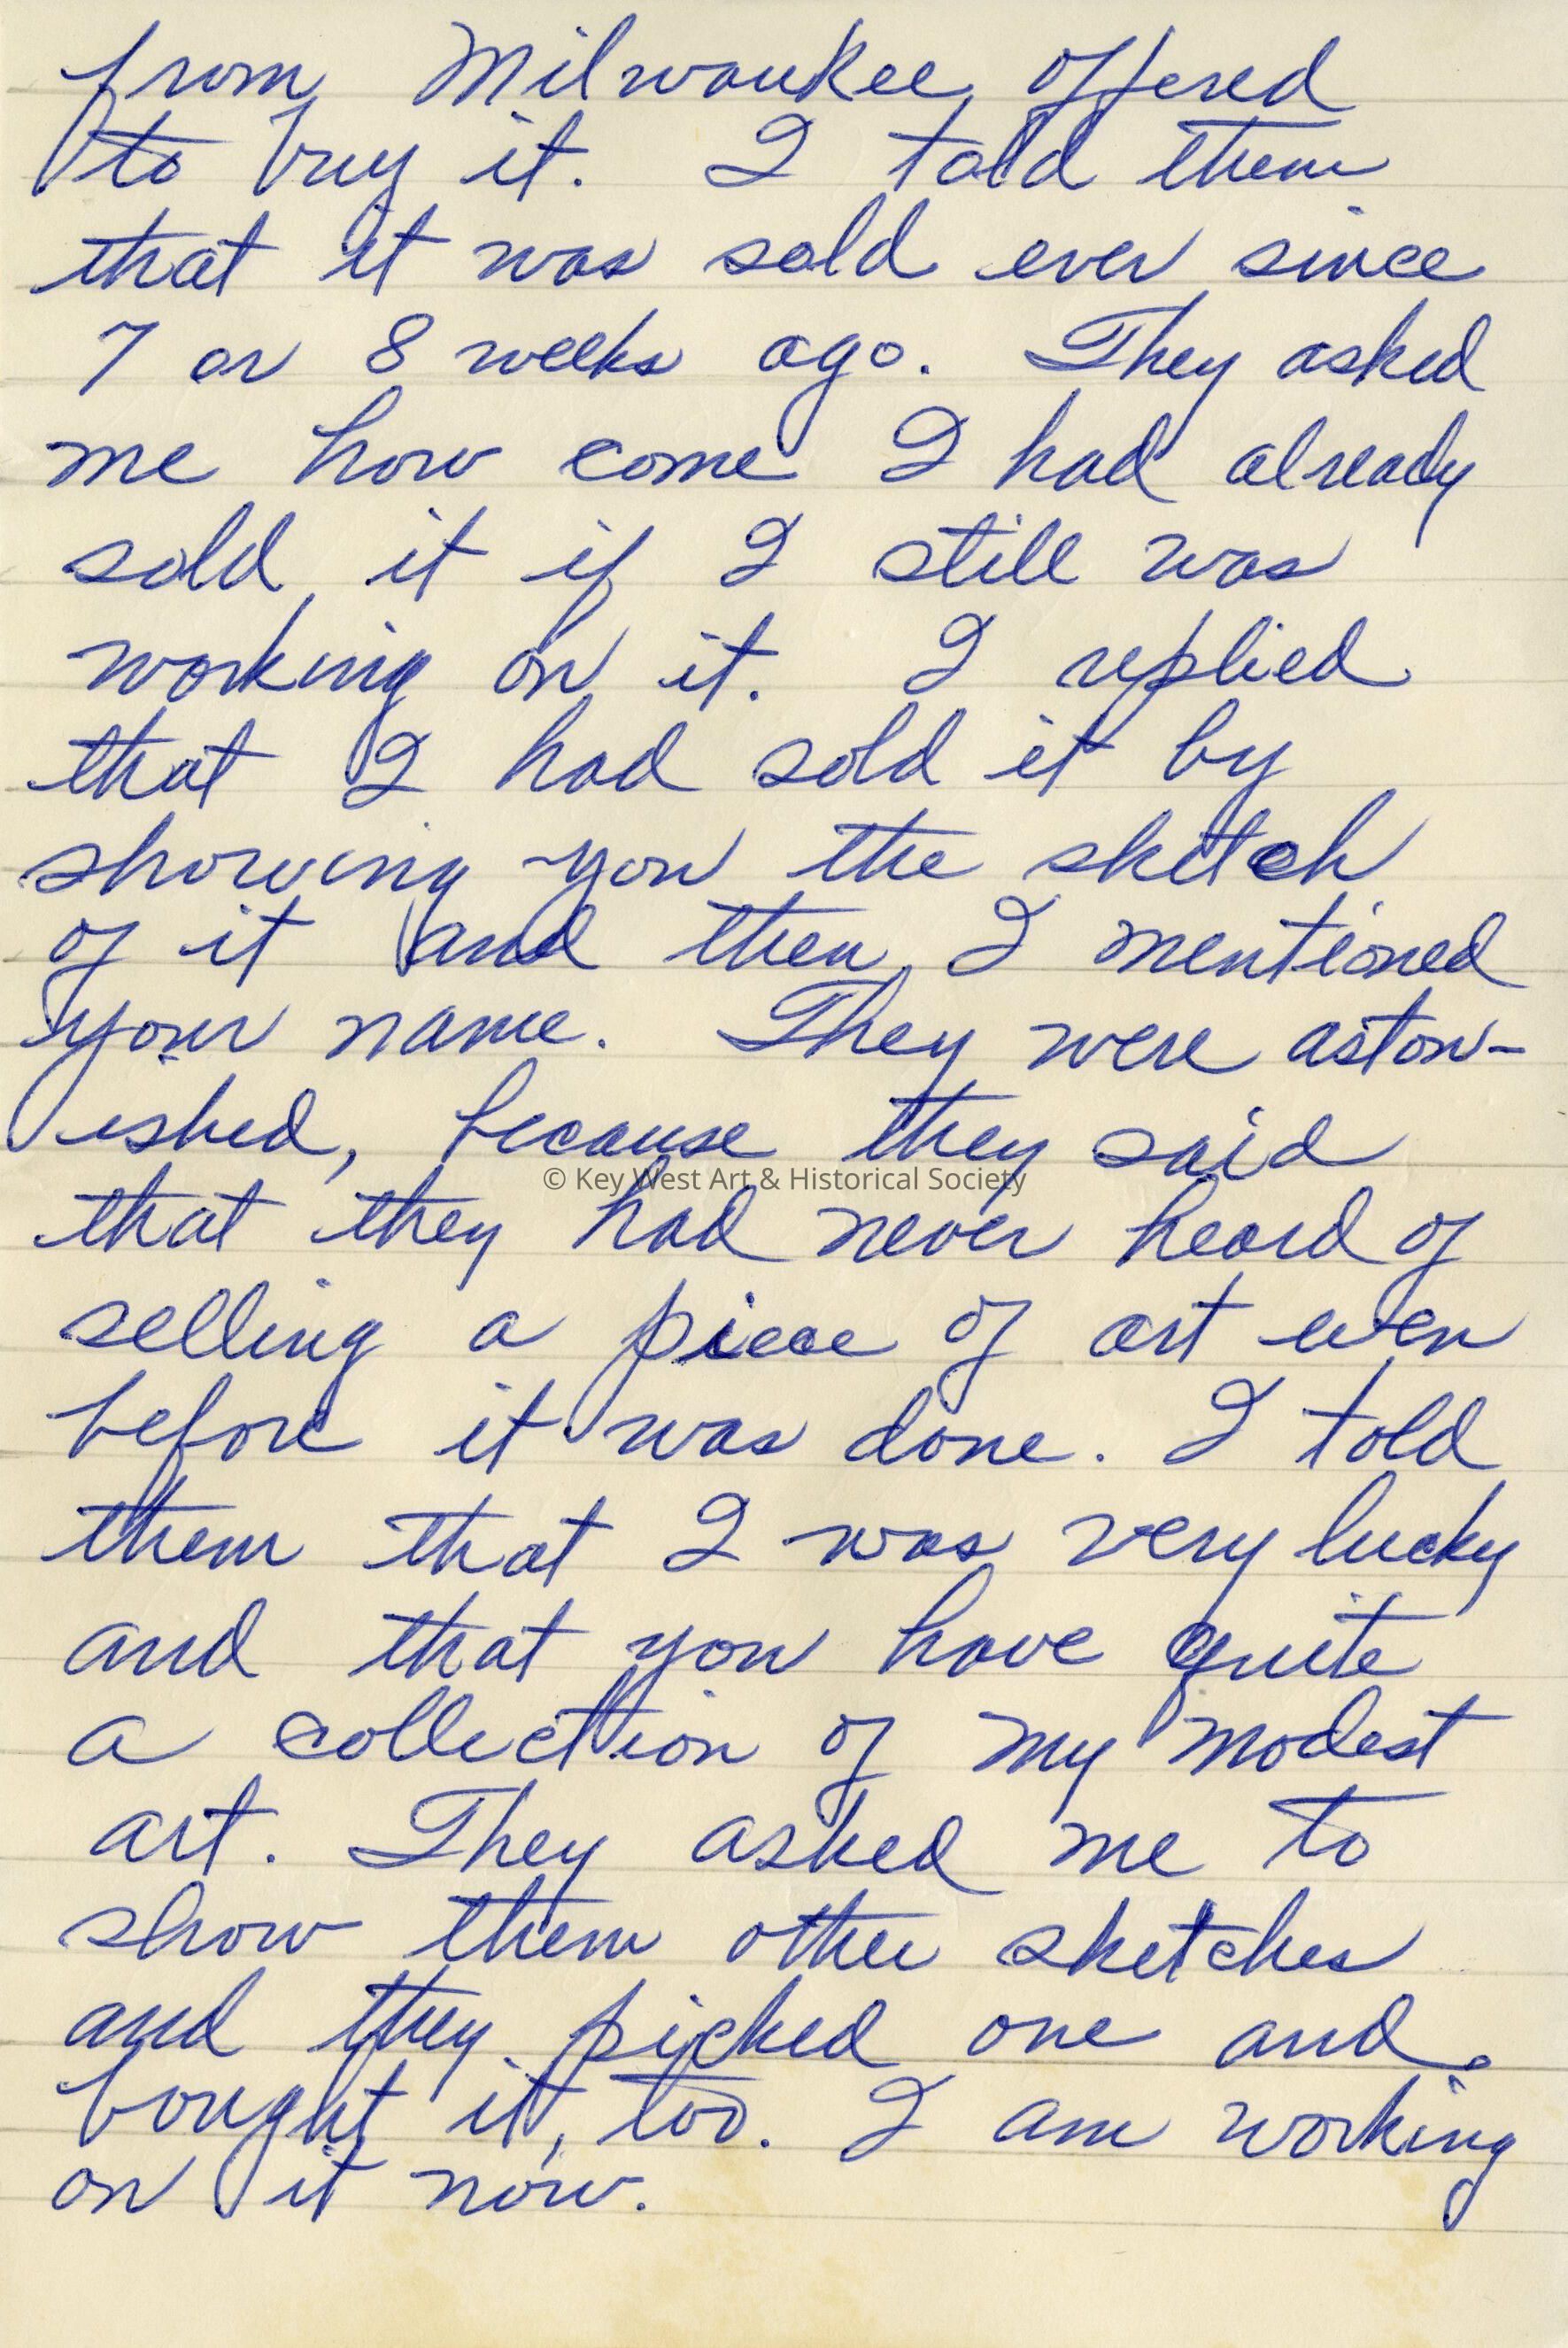 from Milwaukee offered
to buy it. I told them
that it was sold ever since
7 or 8 weeks ago. They asked
me how come I had already
sold it if I still was
working on it. I replied
that I had sold it by
showing you the sketch
of it and then I mentioned
your name. They were aston-
ished, because they said
© Key West Art & Historical Society
that they had never heard of
selling a piece of art even
before it was done. I told
them that I was very lucky
and that you have quite
a collection of my modest
art. They asked me to
show them other sketches
and they picked one and
bought it, too. I am working
on it now.